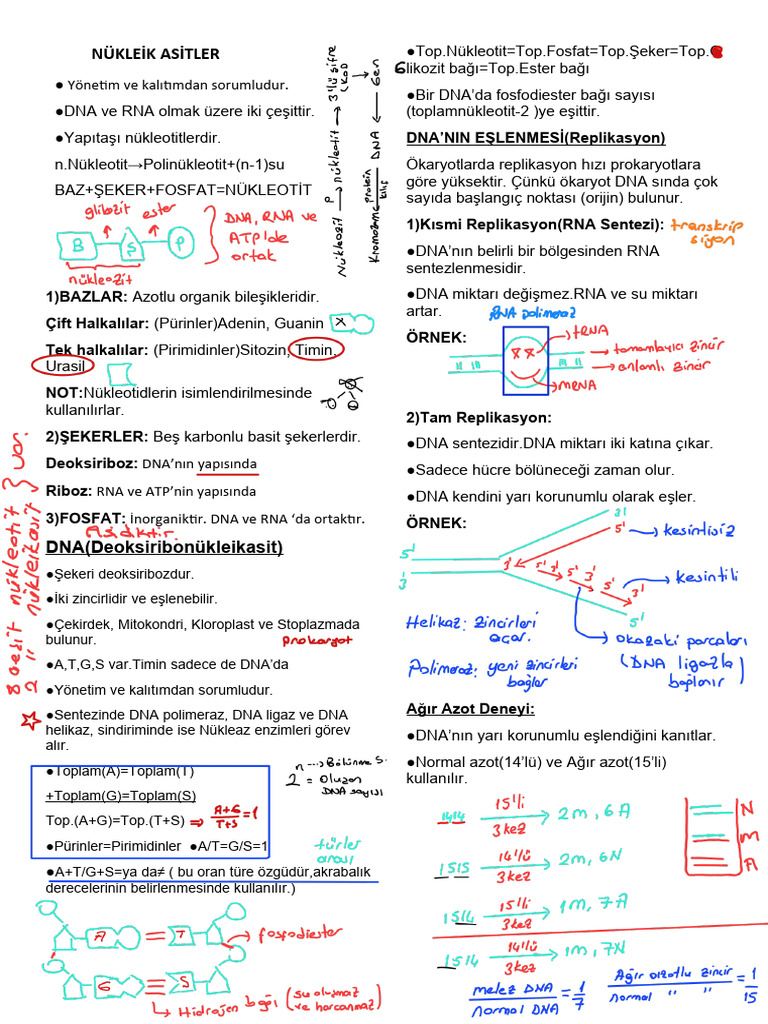 NÜKLEİK ASİTLER
● Yönetim ve kalıtımdan sorumludur.
●DNA ve RNA olmak üzere iki çeşittir.
●Yapıtaşı nükleotitlerdir.
n.Nükleotit→Polinükleotit+(n-1)su
BAZ+ŞEKER+FOSFAT=NÜKLEOTİT
glikozit ester
B Ş P
nükleozit
DNA, RNA ve
ATP'de
ortak
Nükleozit P→ nükleotit → 3'lü şifre
(KOD) → Gen
Kromozom DNA
protein
kılıf
1)BAZLAR: Azotlu organik bileşikleridir.
Çift Halkalılar: (Pürinler)Adenin, Guanin
Tek halkalılar: (Pirimidinler)Sitozin, Timin,
Urasil
NOT:Nükleotidlerin isimlendirilmesinde
kullanılırlar.
2)ŞEKERLER: Beş karbonlu basit şekerlerdir.
Deoksiriboz: DNA'nın yapısında
Riboz: RNA ve ATP'nin yapısında
3)FOSFAT: İnorganiktir. DNA ve RNA 'da ortaktır.
Asidiktir.
8 çeşit nükleotit
2 " nükleikasit } var.
DNA(Deoksiribonükleikasit)
●Şekeri deoksiribozdur.
●İki zincirlidir ve eşlenebilir.
●Çekirdek, Mitokondri, Kloroplast ve Stoplazmada
bulunur. Prokaryot
●A,T,G,S var.Timin sadece de DNA'da
●Yönetim ve kalıtımdan sorumludur.
●Sentezinde DNA polimeraz, DNA ligaz ve DNA
helikaz, sindiriminde ise Nükleaz enzimleri görev
alır.
●Toplam(A)=Toplam(T)
+Toplam(G)=Toplam(S)
Top.(A+G)=Top.(T+S) ⇒ A+G/T+S=1
●Pürinler=Pirimidinler ●A/T=G/S=1
n → Bölünme S.
2 = Oluşan
DNA sayısı
türler
arası
●A+T/G+S=ya da≠ ( bu oran türe özgüdür,akrabalık
derecelerinin belirlenmesinde kullanılır.)
A T
fosfodiester
G S
Hidrojen bağı (su oluşmaz
ve harcanmaz)
●Top.Nükleotit=Top.Fosfat=Top.Şeker=Top.
Glikozit bağı=Top.Ester bağı
●Bir DNA'da fosfodiester bağı sayısı
(toplamnükleotit-2 )ye eşittir.
DNA'NIN EŞLENMESİ(Replikasyon)
Ökaryotlarda replikasyon hızı prokaryotlara
göre yüksektir. Çünkü ökaryot DNA sında çok
sayıda başlangıç noktası (orijin) bulunur.
1)Kısmi Replikasyon(RNA Sentezi): transkrip
siyon
●DNA'nın belirli bir bölgesinden RNA
sentezlenmesidir.
●DNA miktarı değişmez.RNA ve su miktarı
artar. RNA polimeraz
ÖRNEK:
tRNA
tamamlayıcı zincir
anlamlı zincir
mRNA
2)Tam Replikasyon:
●DNA sentezidir.DNA miktarı iki katına çıkar.
●Sadece hücre bölüneceği zaman olur.
●DNA kendini yarı korunumlu olarak eşler.
ÖRNEK:
3'
5' kesintisiz
5'
3'
3' 5' 3' 5' 3' 5' 3'
kesintili
5'
Helikaz: zincirleri
açar.
okazaki parçaları
(DNA ligazla
bağlanır)
Polimeraz: yeni zincirleri
bağlar
Ağır Azot Deneyi:
●DNA'nın yarı korunumlu eşlendiğini kanıtlar.
●Normal azot(14'lü) ve Ağır azot(15'li)
kullanılır.
1414 15'li 3kez → 2m, 6A
1515 14'lü 3kez → 2m, 6N
1514 15'li 3kez → 1m, 7A
1514 14'lü 3kez → 1m, 7N
N
m
A
melez DNA/normal DNA = 1/7
Ağır azotlu zincir/normal " " = 1/15